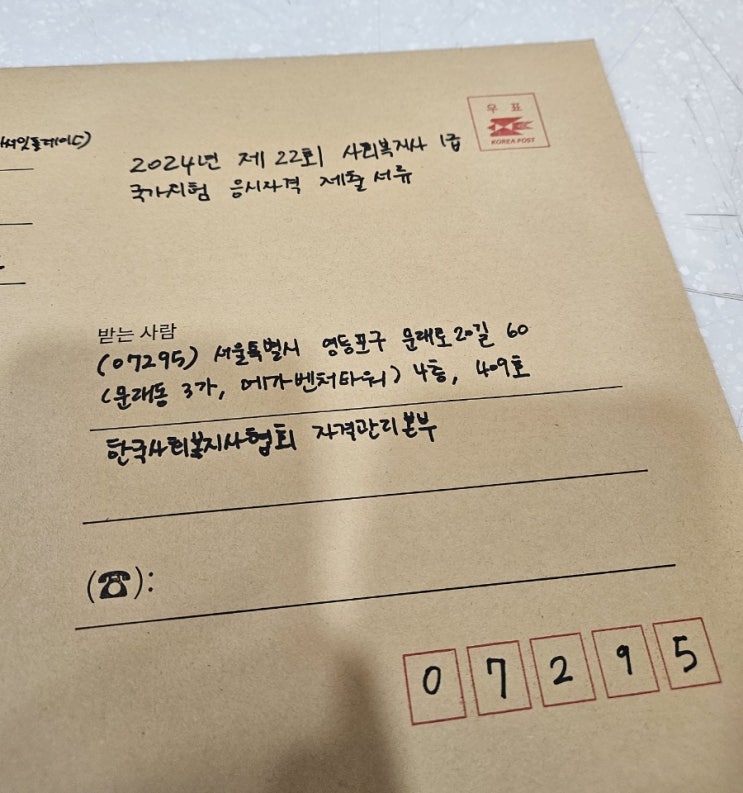 2024년 제 22회 사회복지사 1급
국가시험 응시자격 제출서류
우 표
KOREA POST
받는 사람
(07295) 서울특별시 영등포구 문래로20길 60
(문래동 3가, 메가벤처타워) 4층, 409호
한국사회복지사협회 자격관리본부
(☎):
07295